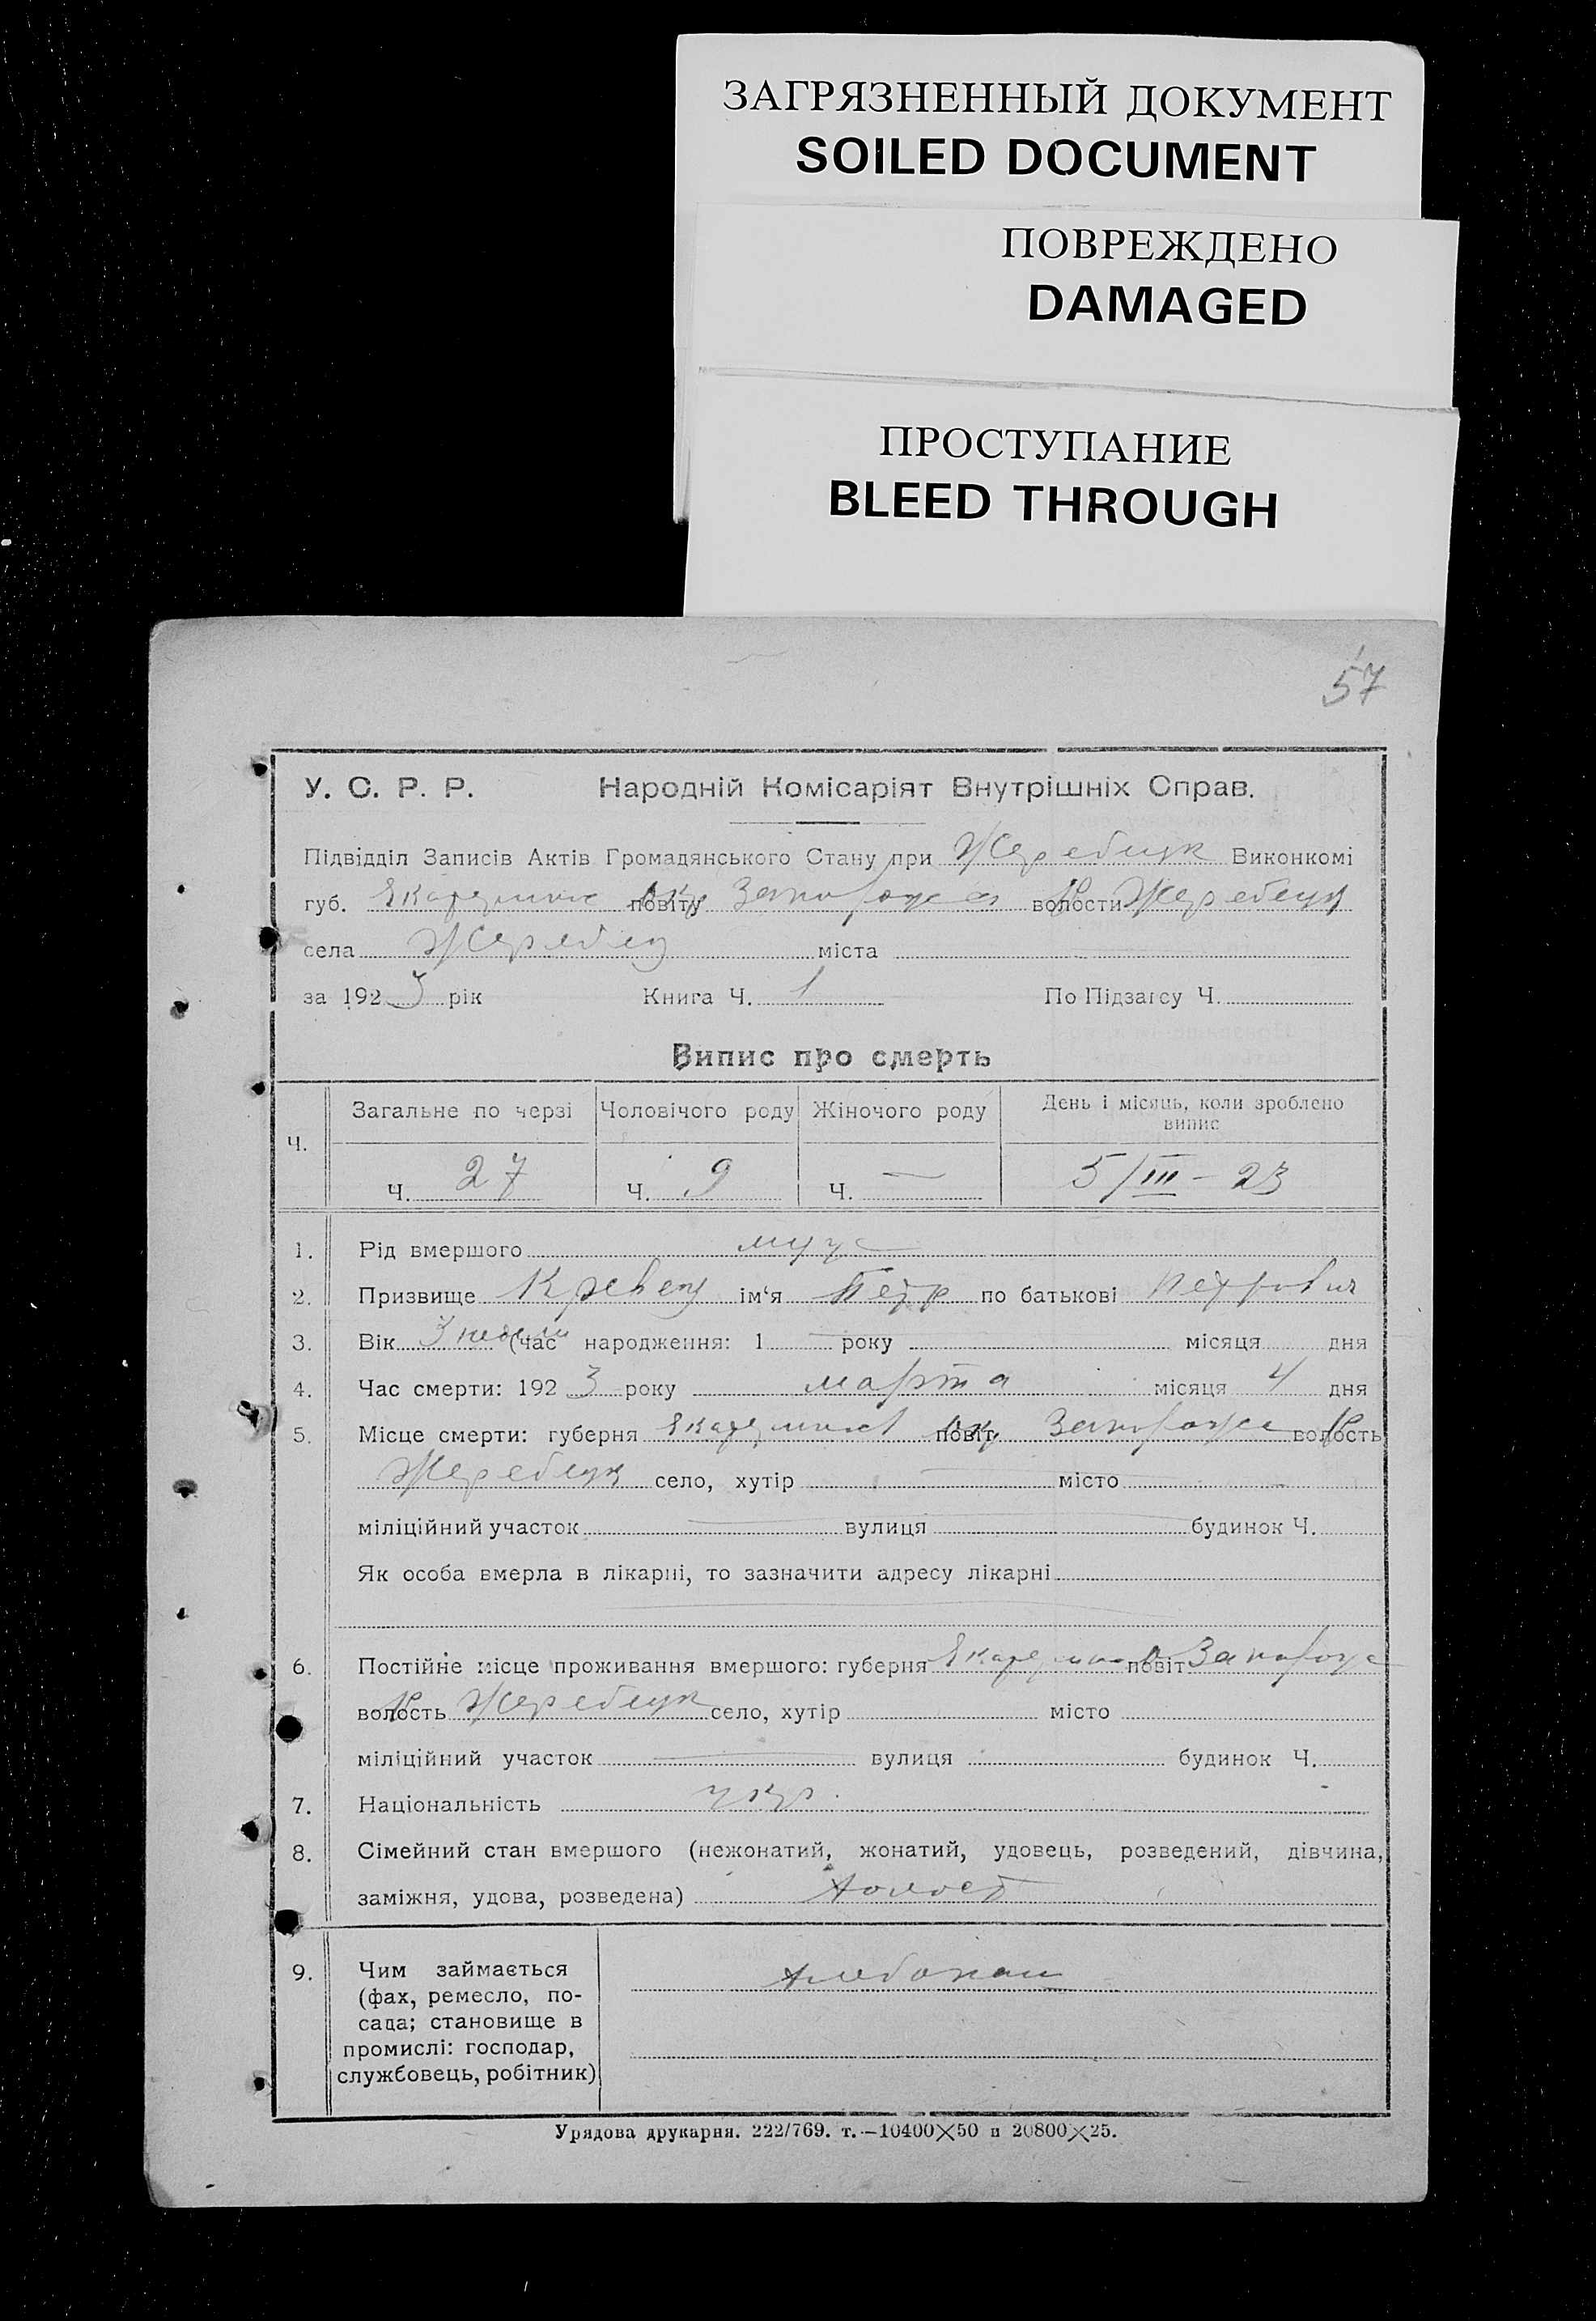 ЗАГРЯЗНЕННЫЙ ДОКУМЕНТ
SOILED DOCUMENT
ПОВРЕЖДЕНО
DAMAGED
ПРОСТУПАНИЕ
BLEED THROUGH
57
У. С. Р. Р. Народній Комісаріят Внутрішніх Справ.
Підвідділ Записів Актів Громадянського Стану при Жеребецк Виконкомі
губ. повіту Окр волости Р Жеребецк
села Жеребец міста
за 1923 рік Книга Ч. 1 По Підзагсу Ч.
Випис про смерть
Ч. Загальне по черзі Чоловічого роду Жіночого роду День і місяць, коли зроблено випис
Ч. 27 Ч. 9 Ч. — 5/III – 23
1. Рід вмершого муж
2. Призвище ім‘я Петр по батькові Петрович
3. Вік 3 недели (час народження: 1 року місяця дня
4. Час смерти: 1923 року марта місяця 4 дня
5. Місце смерти: губерня повіт Окр волость Р
Жеребецк село, хутір — місто —
міліційний участок — вулиця будинок Ч.
Як особа вмерла в лікарні, то зазначити адресу лікарні
6. Постійне місце проживання вмершого: губерня повіт О
волость Р Жеребецк село, хутір місто
міліційний участок — вулиця будинок Ч.
7. Національність укр.
8. Сімейний стан вмершого (нежонатий, жонатий, удовець, розведений, дівчина,
заміжня, удова, розведена) холост
9. Чим займається
(фах, ремесло, по-
сада; становище в
промислі: господар,
службовець, робітник)
хлебопаш
Урядова друкарня. 222/769. т.—10400×50 п 20800×25.